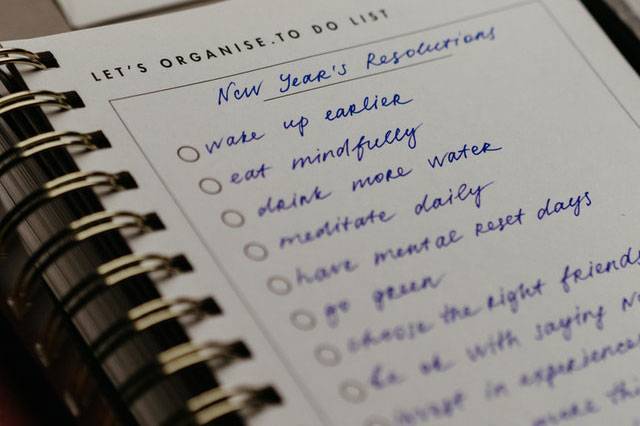 LET'S ORGANISE.TO DO LIST
New Year's Resolutions
wake up earlier
eat mindfully
drink more water
meditate daily
have mental reset days
go green
choose the right friends
be ok with saying N
in experiences
more